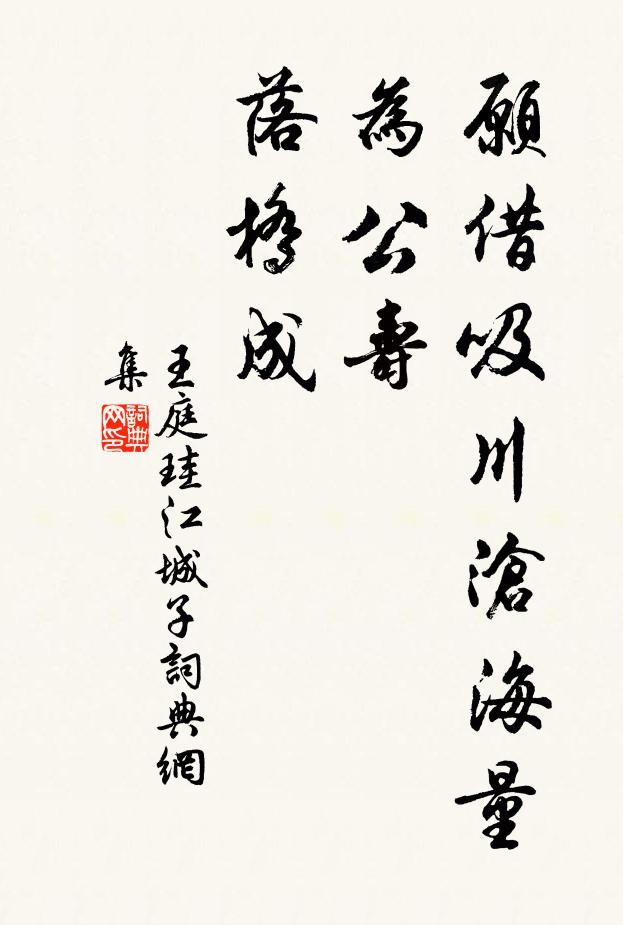 願借吸川滄海量
為公壽
落橋成
王庭珪江城子詞典網
集
詞典
网印